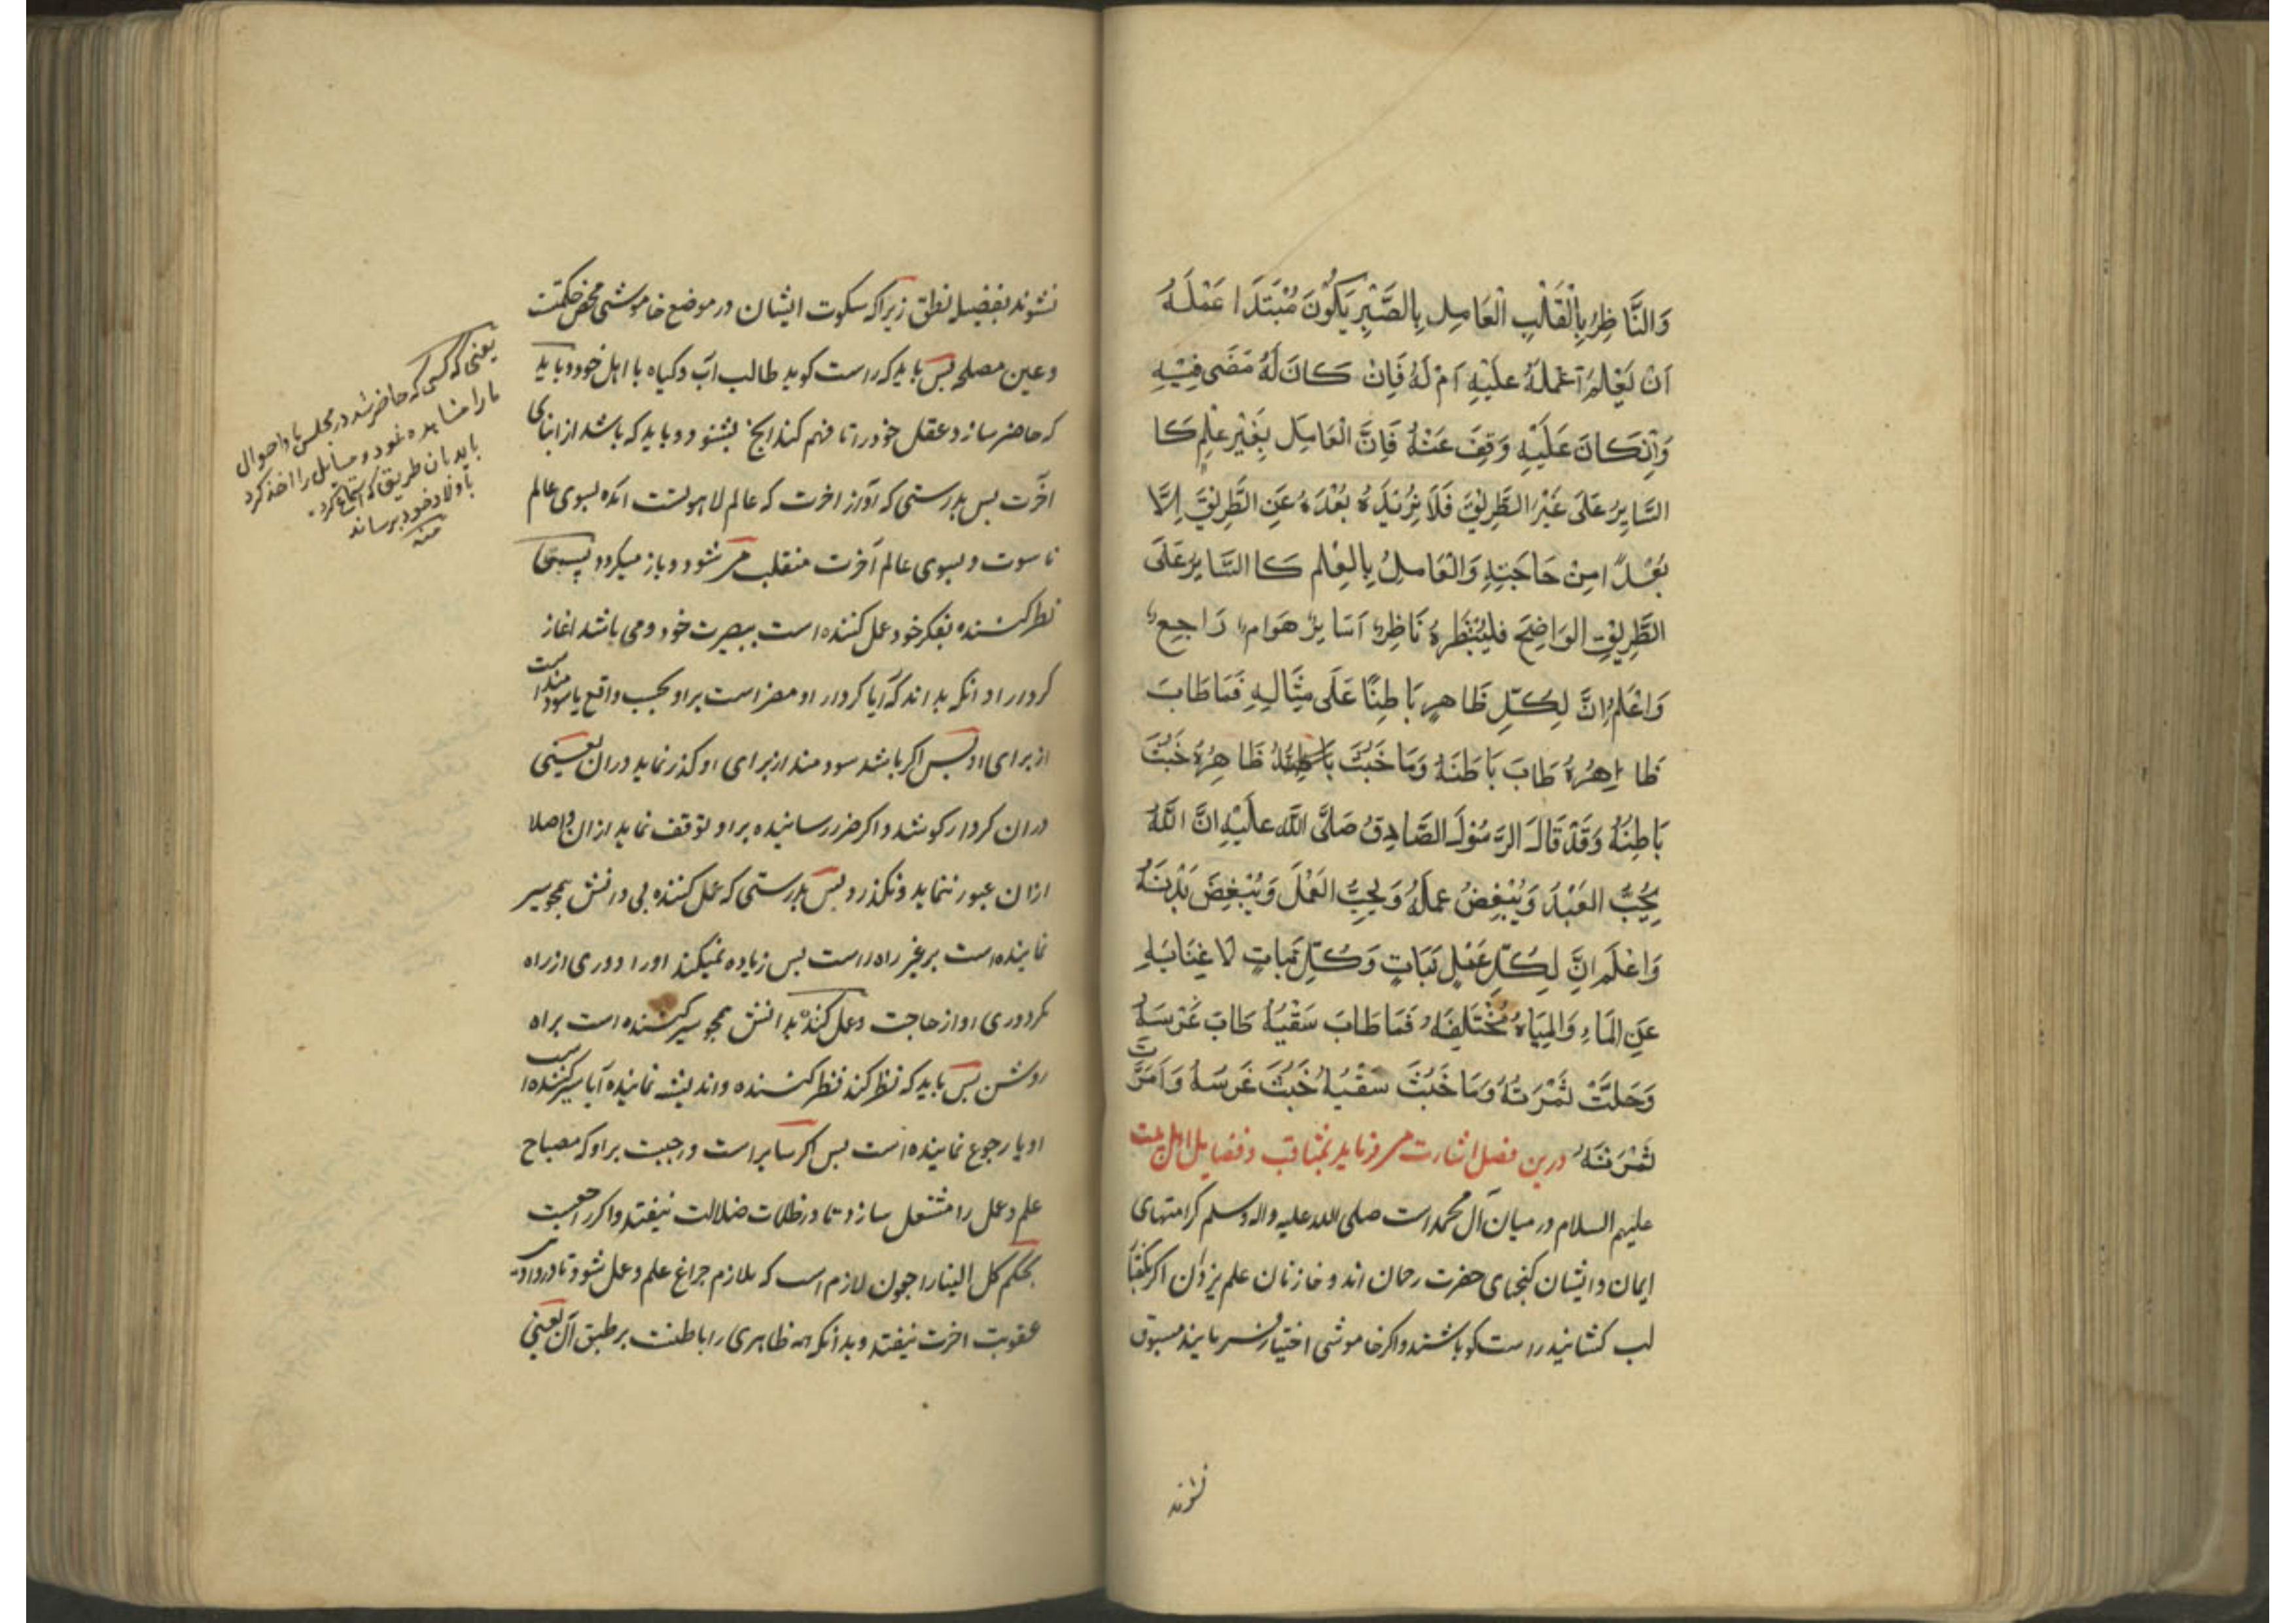 وَالنَّاظِرُ بِالْقَلْبِ الْعَامِلِ بِالصَّبْرِ يَكُوْنَ مُبْتَدَا عَمْلَهُ
اَنْ يَعْلَمُ آعَمْلَهُ عَلَيْهِ اَمْ لَهُ فَاِنْ كَانَ لَهُ مَضَى فِيْهِ
وَاِنْكَانَ عَلَيْهِ وَقِفَ عَنْهُ فَاِنَّ الْعَامِلَ بِغَيْرِ عِلْمٍ كَا
السَّايِرُ عَلَى غَيْرِ الطَّرِيْقِ فَلَا يَزِيْدُهُ بُعْدَهُ عَنِ الطَّرِيْقِ اِلَّا
بُعْدًا مِنْ حَاجَتِهِ وَالْعَامِلُ بِالْعِلْمِ كَا السَّايِرُ عَلَى
الطَّرِيْقِ الوَاضِحَ فليُنْظَرهُ نَاظِرٌ اَسَايِرٌ هَوَام رَاجِعٌ
وَاعْلَمْ اِنَّ لِكُلِّ ظَاهِرٍ بَاطِنًا عَلَى مِثَالِهِ فَمَا طَابَ
ظَاهِرُهُ طَابَ بَاطَنَهُ وَمَا خَبُثَ ظَاهِرُهُ خَبُثَ
بَاطِنُهُ وَقَدْ قَالَ الرَّسُوْلَ الصَّادِقُ صَلَّى اللّه عَلَيْهِ اِنَّ اللّهَ
يُحِبُّ العَبْدَ وَيُبْغِضُ عَمَلَهُ وَيُحِبُّ العَمْلَ وَيُبْغِضَ بَدْنَهُ
وَاعْلَم اِنَّ لِكُلِّ عَمْلٍ نَبَاتٍ وَكُلِّ نَبَاتٍ لَا غِنَا بِهِ
عَنِ المَاءِ وَالمِيَاهُ مُخْتَلِفَهٌ فَمَا طَابَ سَقْيُهُ طَابَ غَرْسَهُ
وَحَلَتْ ثَمْرَتُهُ وَمَا خَبُثَ سَقْيُهُ خَبُثَ غَرسَهُ وَاَمَرَّتَ
ثَمْرَتَهُ درين فصل اشارت مى فرمايد بمناقب و فضايل اهل بيت
عليهم السلام در ميان آل محمد است صلى الله عليه واله وسلم كرامتهاى
ايمان وايشان كنجهاى حضرت رحمان اند و خازنان علم يزدان اكر بكفتار
لب كشانيد راست كو باشند و اكر خاموشى اختيار فرمايند مسبوق
نشوند
نشوند بفضيله نطق زيراكه سكوت ايشان در موضع خاموشى محض حكمتست
وعين مصلحه پس بايد كه راست كويد طالب آب وكياه با اهل خود وبايد
كه حاضر سازد عقل خود را تا فهم كند انچه بشنود و بايد كه باشد از ابناى
آخرت پس بدرستى كه او از اخرت كه عالم لاهوتست آمده بسوى عالم
ناسوت و بسوى عالم آخرت منقلب مى شود و باز ميكردد
نظر كننده بفكر خود عمل كننده است ببصيرت خود ومى باشد اغاز
كردار او انكه بداند كه آيا كردار او مضر است براو بحسب واقع يا سودمند است
از براى او پس اكر باشد سودمند از براى او كذر نمايد دران يعينى
دران كردار كوشد و اكر ضرر رساننده براو توقف نمايد ازان و اصلا
ازان عبور ننمايد و نكذرد پس بدرستى كه عمل كننده بى دانش همچو سير
نماينده است بر غير راه راست پس زياده نميكند اورا دورى از راه
مكر دورى او از حاجت و عمل كننده بدانش همچو سير كننده است براه
روشن پس بايد كه نظر كند نظر كننده و انديشه نماينده آيا سير كننده است
او يا رجوع نماينده است پس اكر ساير است واجبست براو كه مصباح
علم و عمل را مشتعل سازد تا در ظلمات ضلالت نيفتد و اكر راجعست
بحكم كل الينا راجعون لازم است كه ملازم چراغ علم و عمل شود تا در وادى
عقوبت اخرت نيفتد و بدانكه هر ظاهرى را باطنست بر طبق آن يعنى
يعنى كه كسى كه حاضر شد در مجلس ما و احوال
ما را مشاهده نمود و مسايل را اخذ كرد
بايد بان طريق كه استماع كرد
باولاد خود برساند
منه